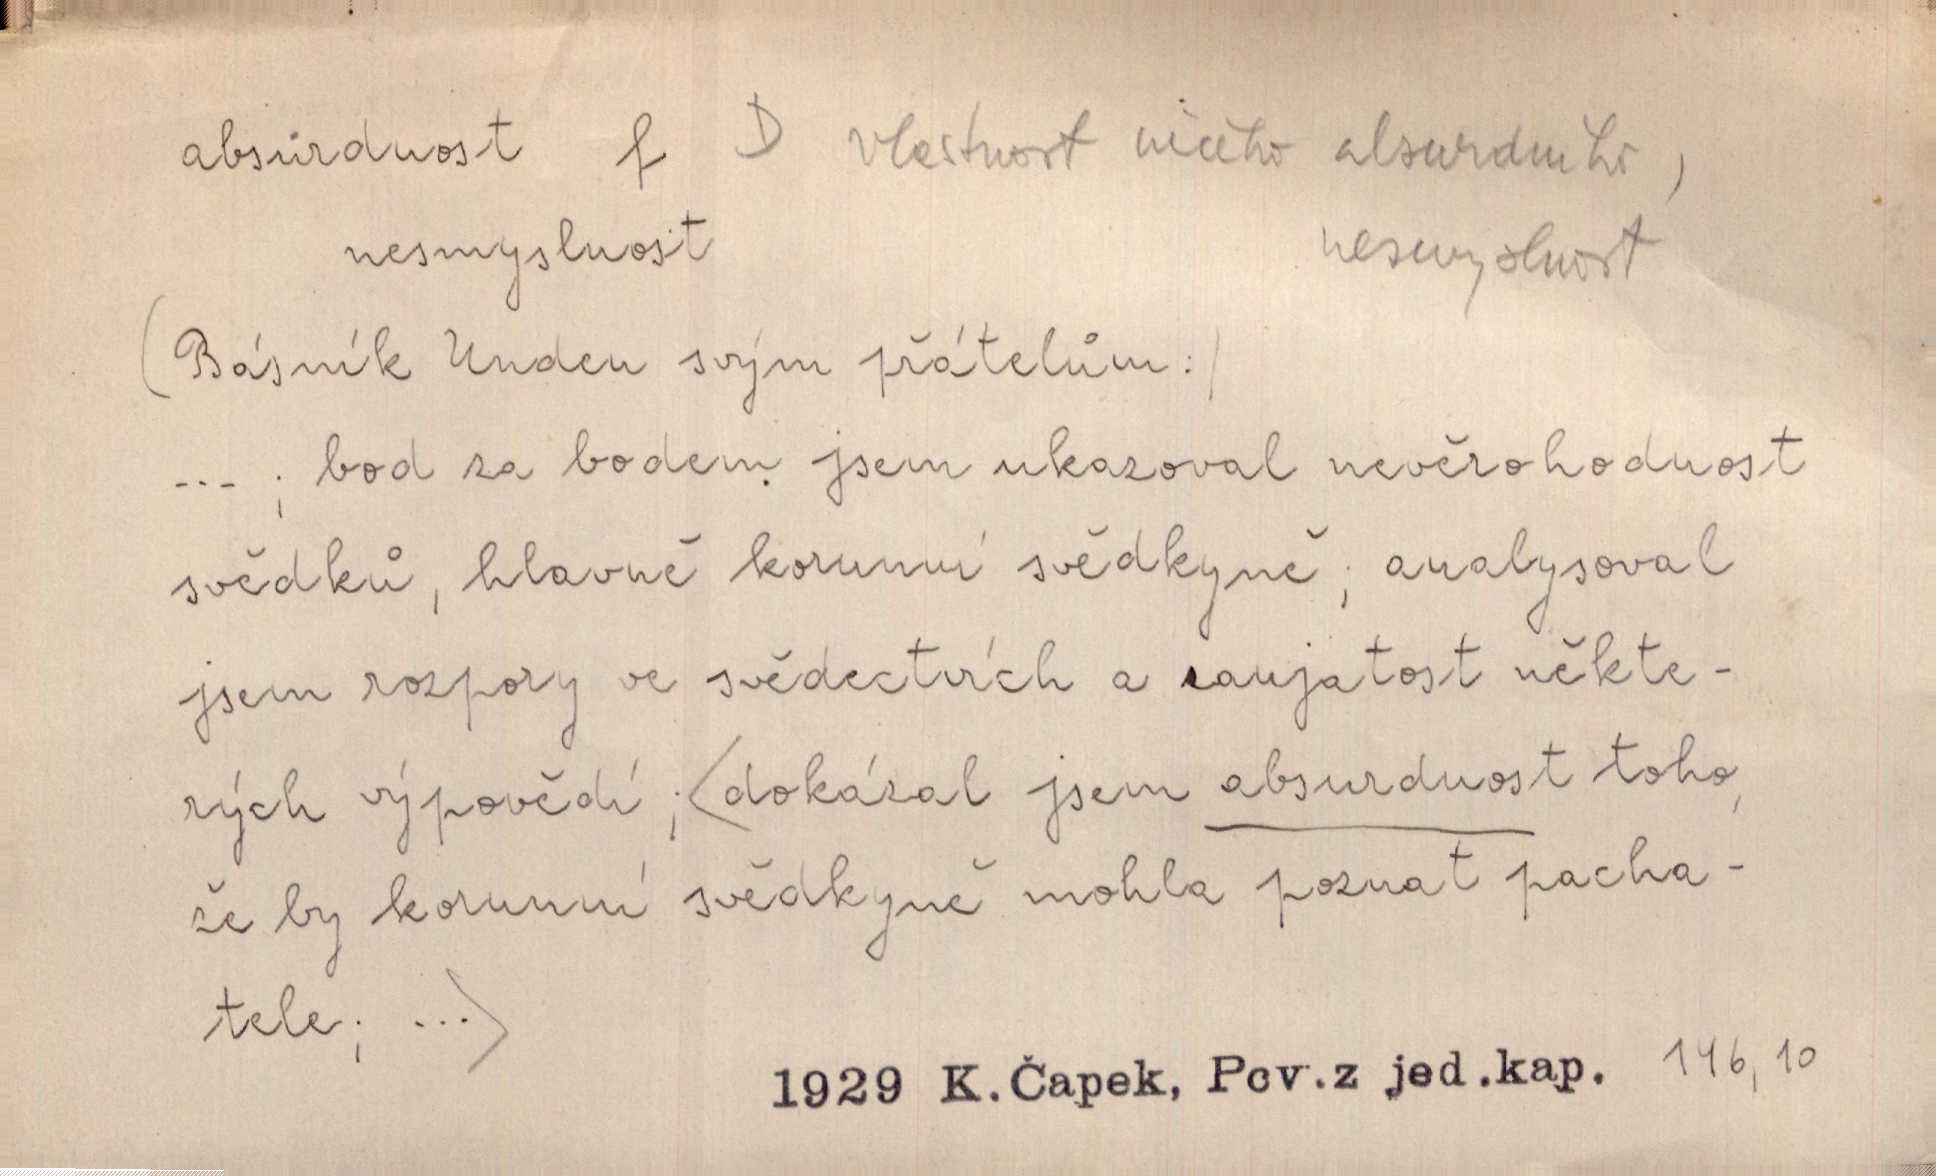 absurdnost f D vlastnost něčeho absurdního,
nesmyslnost nesmyslnost
(Básník Unden svým přátelům:)
...; bod za bodem jsem ukazoval nevěrohodnost
svědků, hlavně korunní svědkyně; analysoval
jsem rozpory ve svědectvích a zaujatost někte-
rých výpovědí; ⟨dokázal jsem absurdnost toho,
že by korunní svědkyně mohla poznat pacha-
tele; ...⟩
1929 K.Čapek, Pov.z jed.kap. 146,10